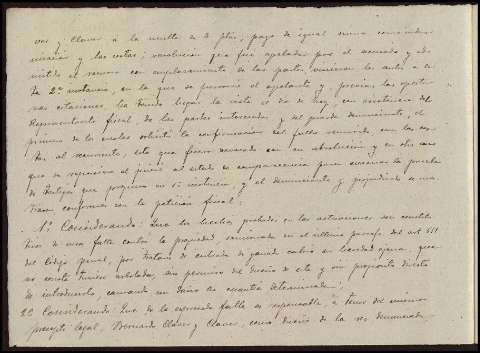 ver y Claver à la multa de 10 ptas, pago de igual suma como indem-
nización y las costas; resolución que fué apelada por el acusado y ad-
mitido en recurso con emplazamiento de las partes vinieron los autos a es-
ta 2ª instancia, en la que se personó el apelante y, previas, las oportu-
nas citaciones ha tenido lugar la vista el día de hoy, con asistencia del
Representante fiscal, de las partes interesadas y del guarda denunciante, el
primero de los cuales solicitó la confirmación del fallo recurrido con las cos-
tas al recurrente, este que fuera revocado con su absolución y en otro caso
que se repusiera el juicio al estado de comparecencia para practicar la prueba
de testigos que propuso en 1ª instancia, y el denunciante y perjudicado es-
tieron conformes con la petición fiscal;
1º Considerando: Que los hechos probados en las actuaciones son constitu-
tivos de una falta contra la propiedad, sancionada en el último párrafo del art 611
del Código penal, por tratarse de entrada de ganado cabrío en heredad ajena, que
no consta tuviere arbolado, sin permiso del dueño de esta y sin propósito directo
de introducirlo, causando un daño en cuantía determinada;
2º Considerando: Que de la expresada falta es responsable à tenor del mismo
precepto legal, Bernardo Claver y Claver, como dueño de la res denunciada